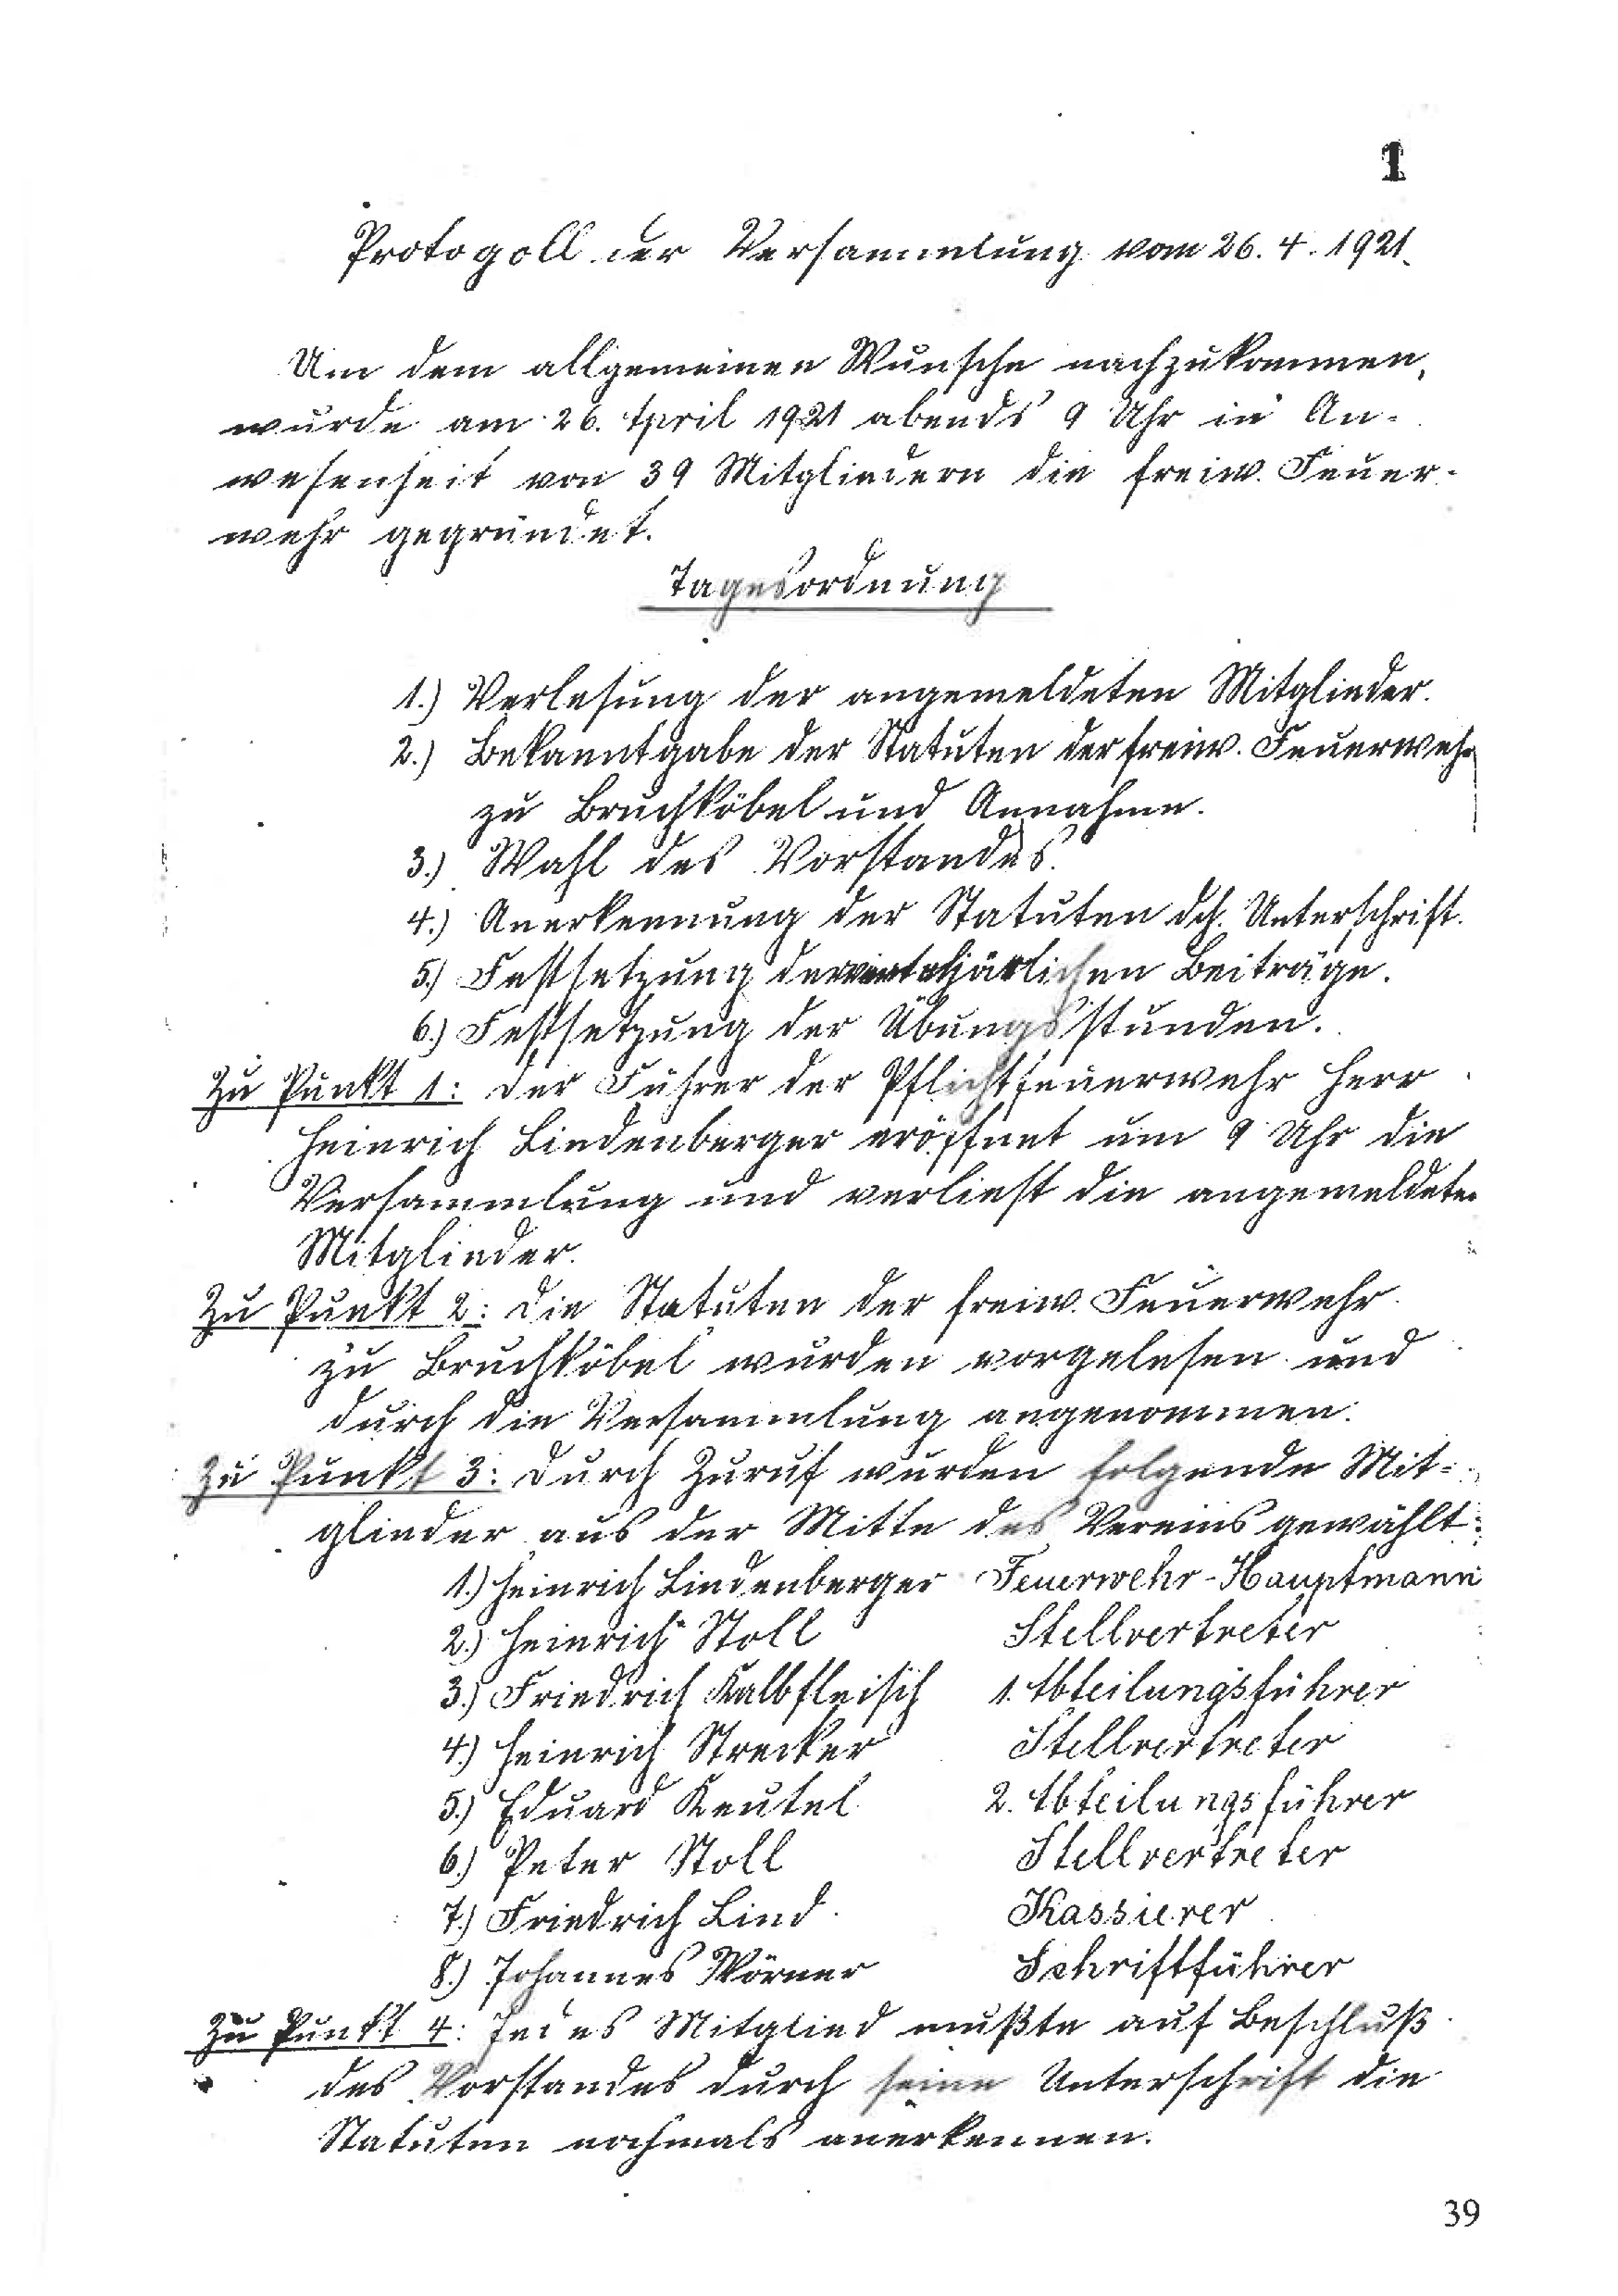 1
Protogoll der Versammlung vom 26. 4. 1921.
Um dem allgemeinen Wunsche nachzukommen,
wurde am 26. April 1921 abends 9 Uhr in An-
wesenheit von 39 Mitgliedern die freiw. Feuer-
wehr gegründet.
Tagesordnung
1.) Verlesung der angemeldeten Mitglieder.
2.) Bekanntgabe der Statuten der freiw. Feuerwehr
zu Bruchköbel und Annahme.
3.) Wahl des Vorstandes.
4.) Anerkennung der Statuten dch. Unterschrift.
5.) Festsetzung der vierteljärlichen Beiträge.
6.) Festsetzung der Übungsstunden.
Zu Punkt 1: Der Führer der Pflichtfeuerwehr Herr
Heinrich Lindenberger eröffnet um 9 Uhr die
Versammlung und verliest die angemeldeten
Mitglieder.
Zu Punkt 2: Die Statuten der freiw. Feuerwehr
zu Bruchköbel wurden vorgelesen und
durch die Versammlung angenommen.
Zu Punkt 3: Durch Zuruf wurden folgende Mit-
glieder aus der Mitte des Vereins gewählt:
1.) Heinrich Lindenberger Feuerwehr-Hauptmann
2.) Heinrich Stoll Stellvertreter
3.) Friedrich Kalbfleisch 1. Abteilungsführer
4.) Heinrich Strecker Stellvertreter
5.) Eduard Keutel 2. Abteilungsführer
6.) Peter Stoll Stellvertreter
7.) Friedrich Lind Kassierer
8.) Johannes Wörner Schriftführer
Zu Punkt 4: Jedes Mitglied mußte auf Beschluß
des Vorstandes durch seine Unterschrift die
Statuten nochmals anerkennen.
39